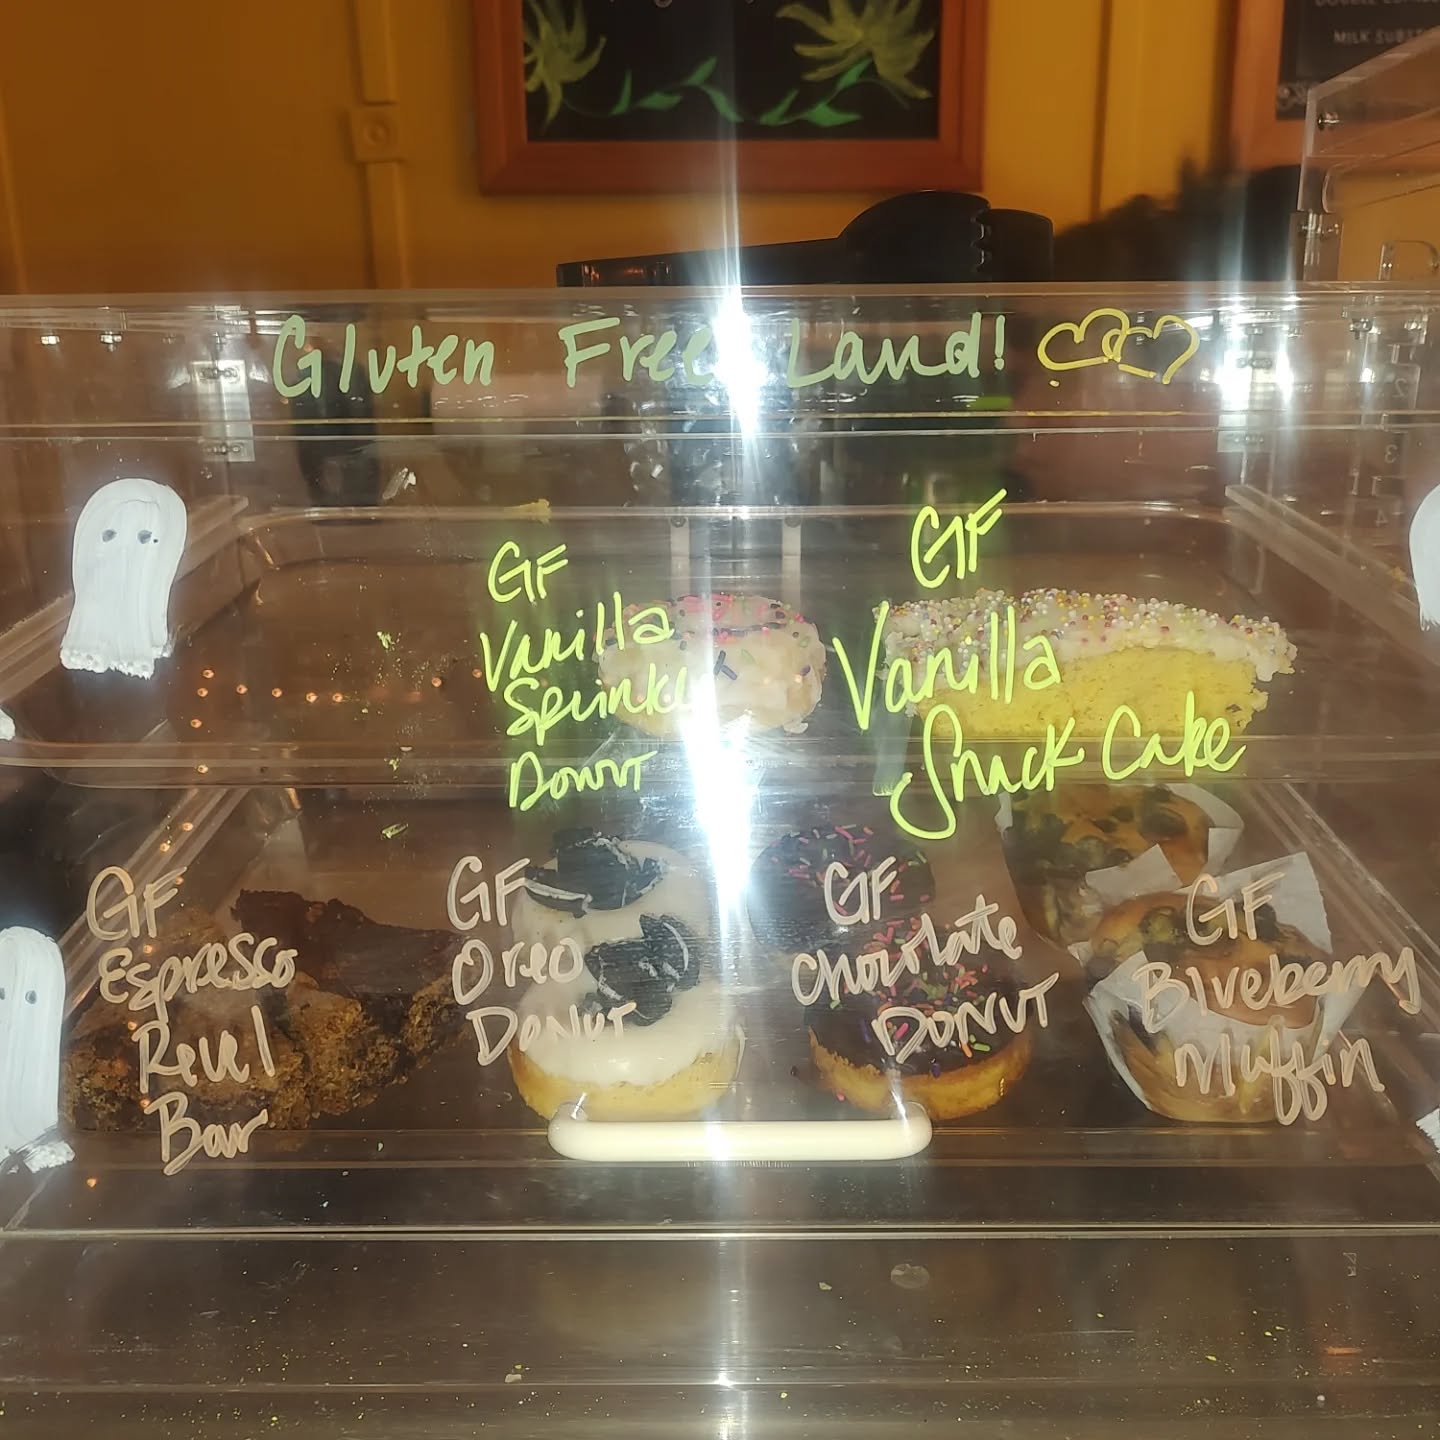 MILK SUBST
Gluten Free Land!
GF
Vanilla
Sprinkle
Donut
GF
Vanilla
Snack Cake
GF
Espresso
Revel
Bar
GF
Oreo
Donut
GF
Chocolate
Donut
GF
Blueberry
Muffin